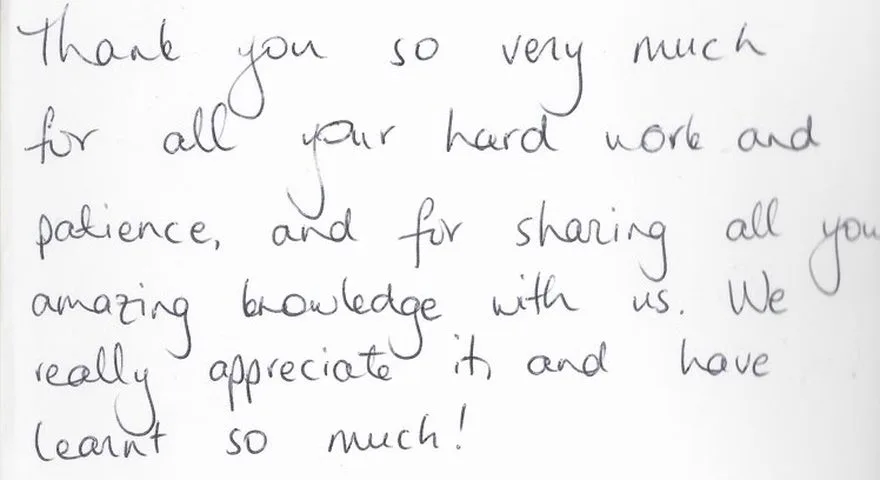 Thank you so very much
for all your hard work and
patience, and for sharing all you
amazing knowledge with us. We
really appreciate it, and have
learnt so much!